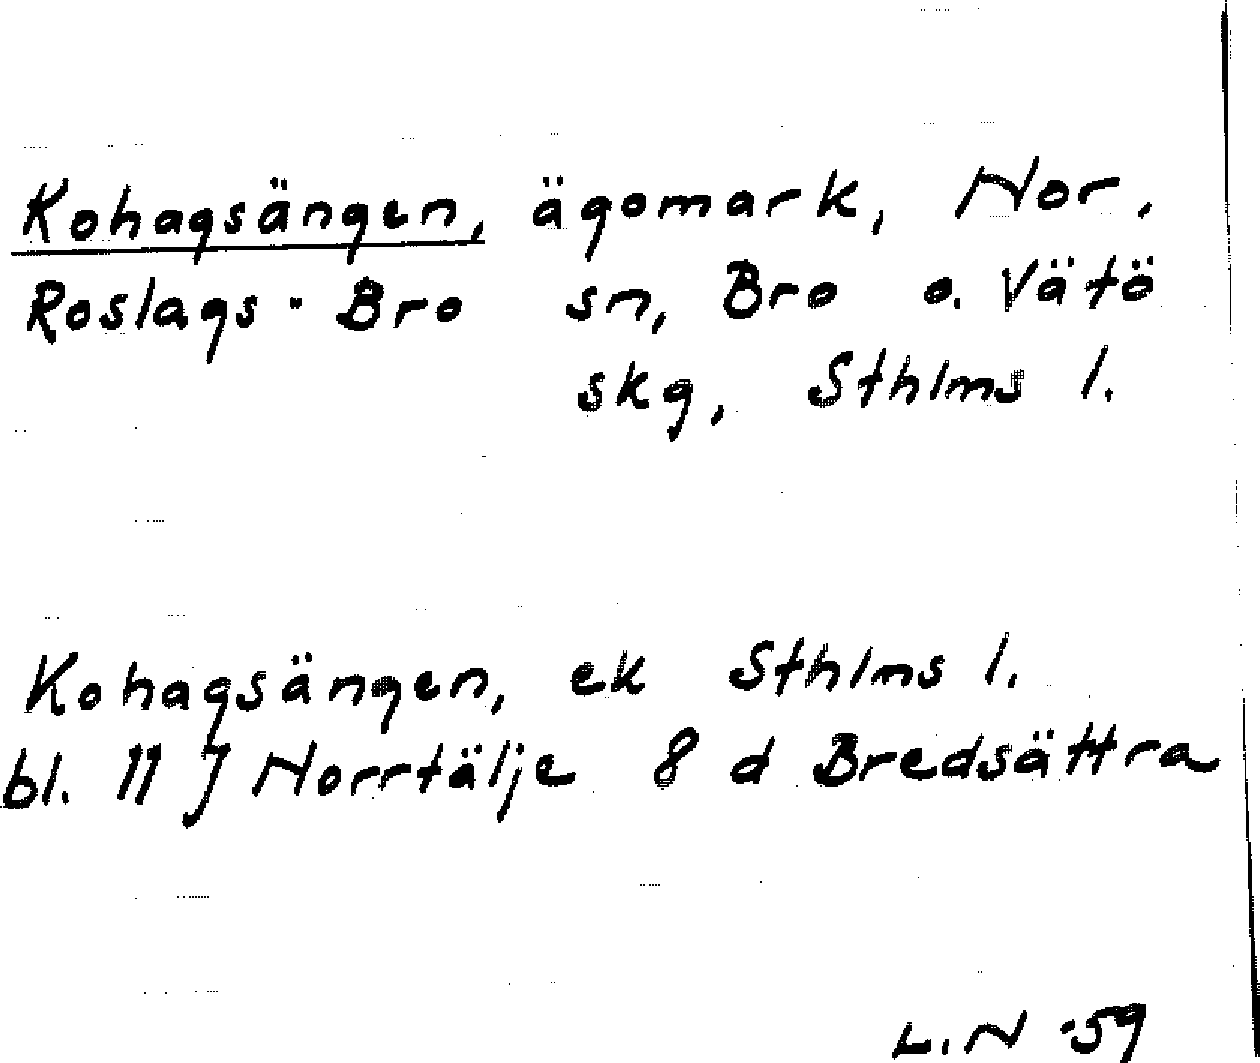 Kohagsängen, ägomark, Nor,
Roslags-Bro sn, Bro o. Vätö
skg, Sthlms l.
Kohagsängen, ek Sthlms l.
bl. 11 J Norrtälje 8 d Bredsättra
L.N -59